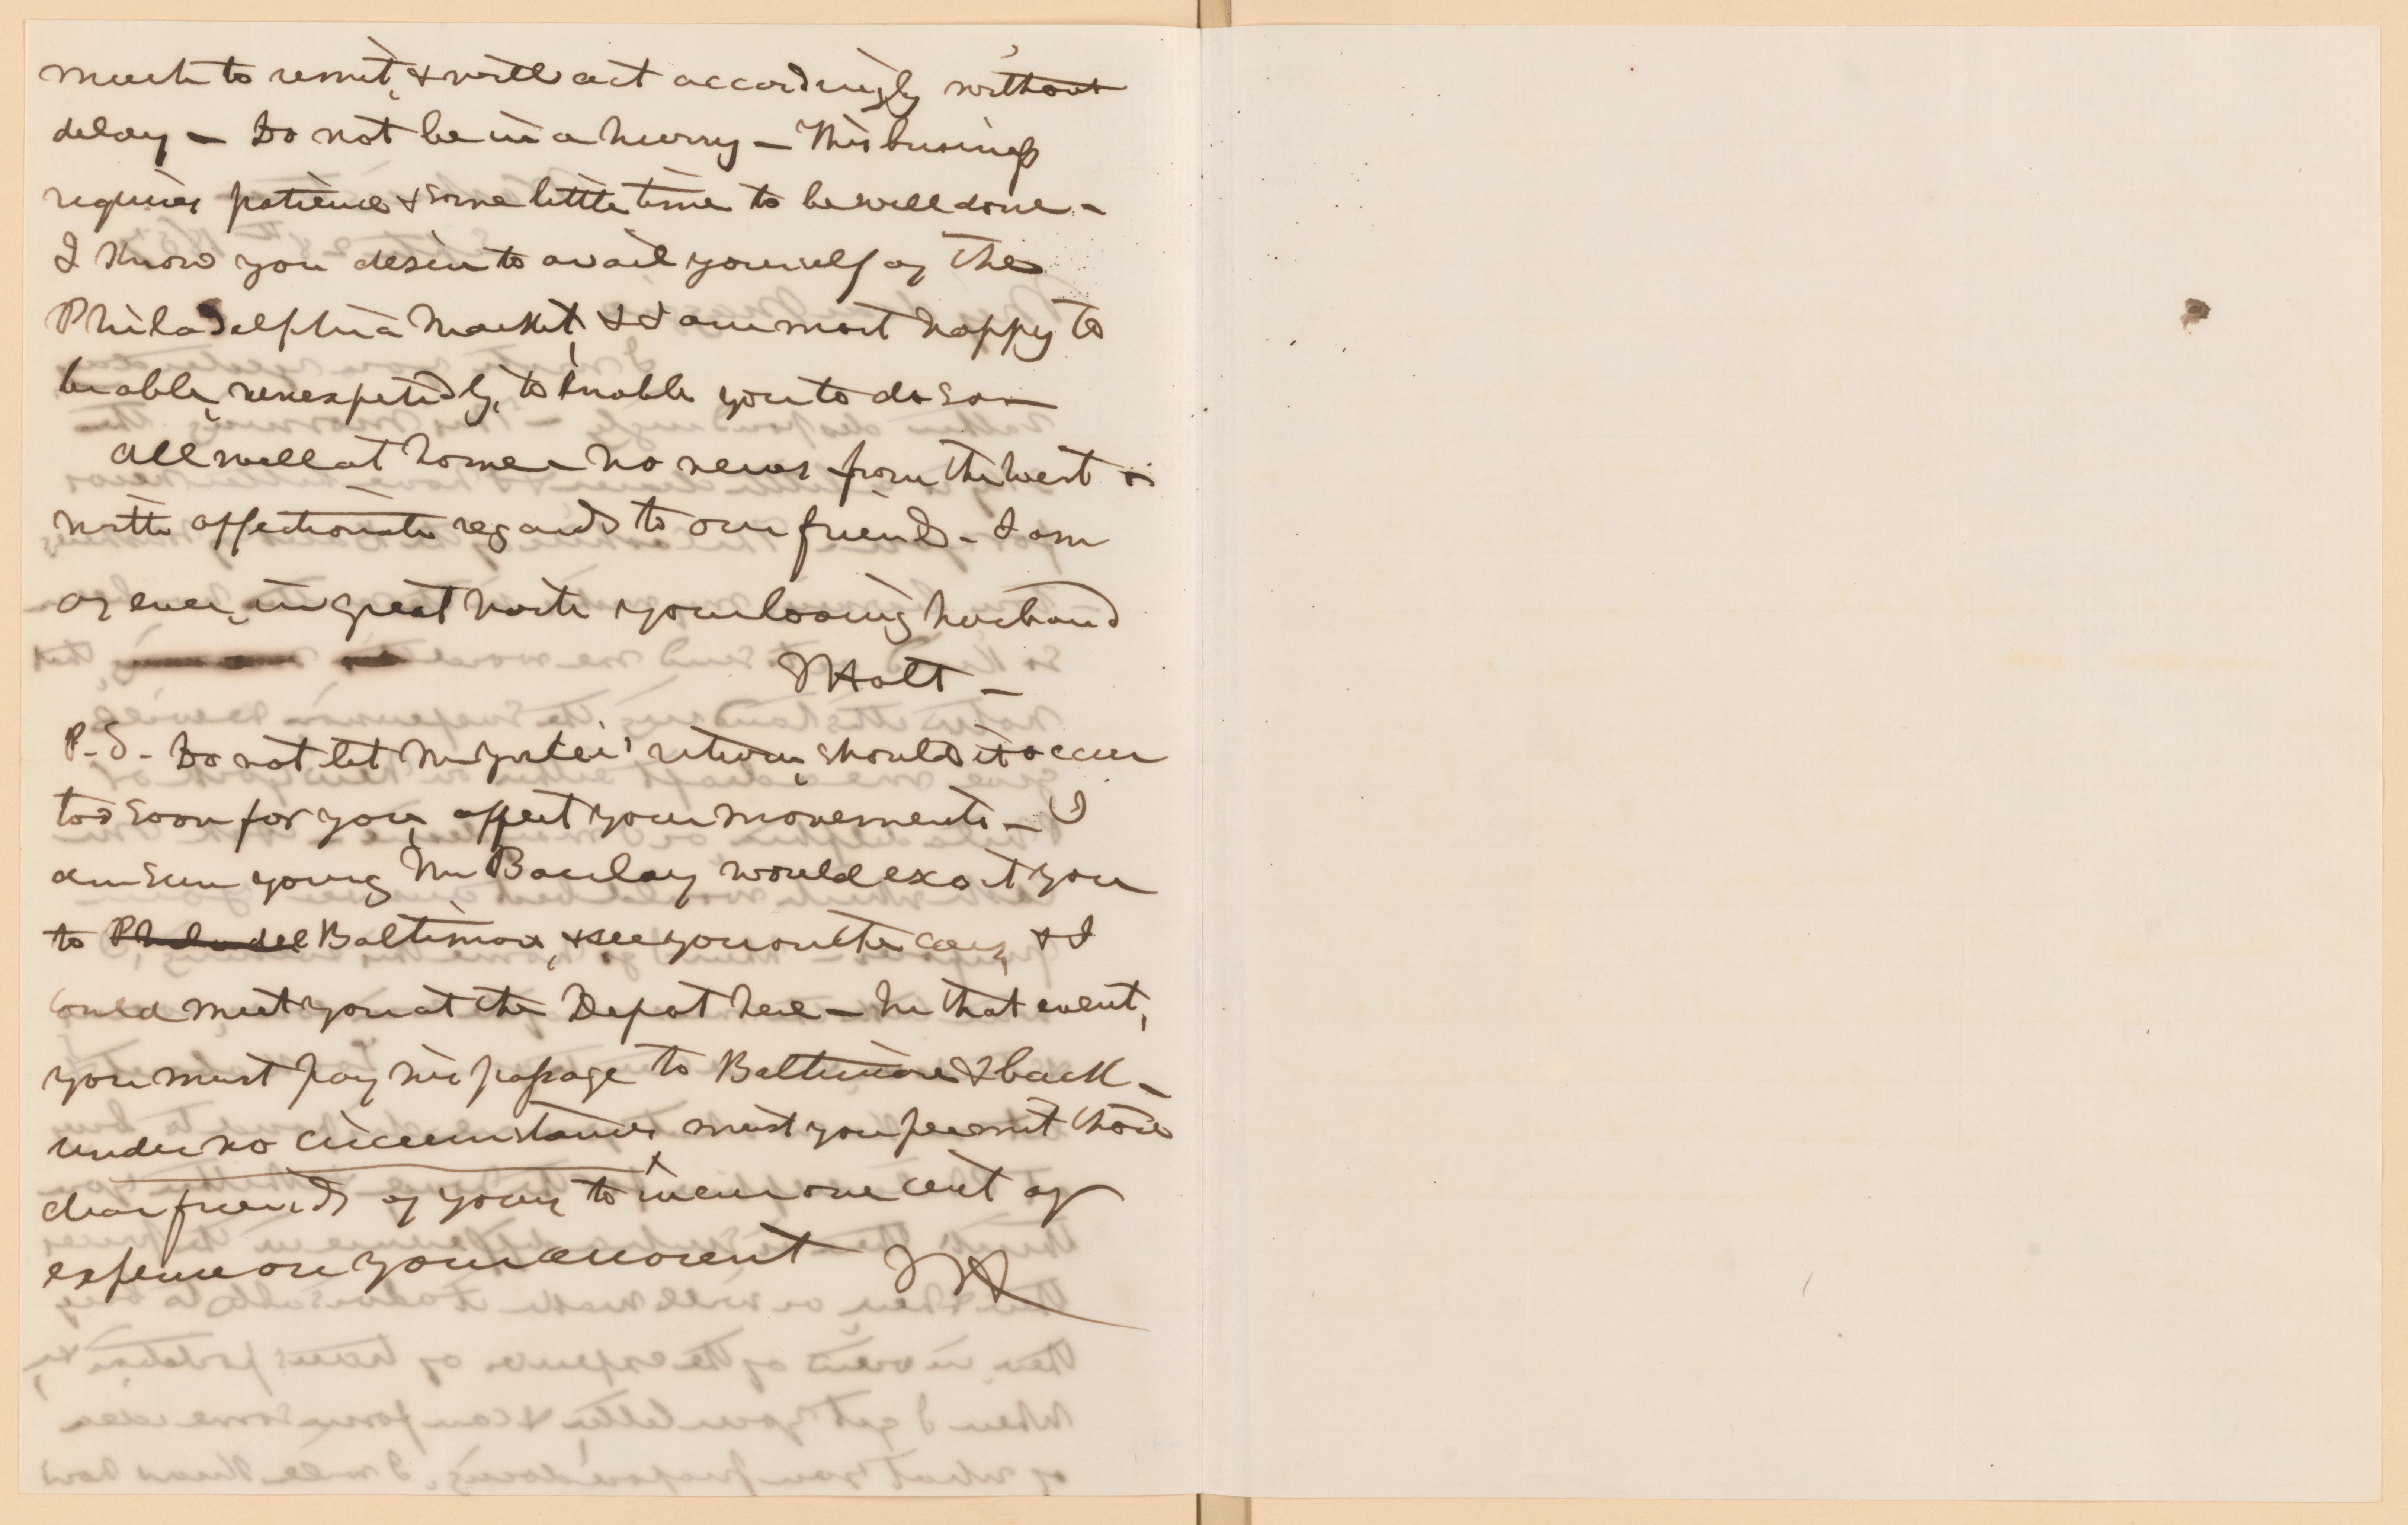 much to remit, & will act accordingly without
delay — Do not be in a hurry — This business
requires patience & some little time to be well done —
I know you desire to avail yourself of the
Philadelphia Market, & I am most happy to
be able, unexpectedly, to enable you to do so —
All well at home — No news from the West —
With affectionate regards to our friends — I am
as ever, in great haste your loving husband
J Holt —
P.S. Do not let Mr return, should it occur
too soon for you, affect your movements — I
am sure young Mr Barclay would escort you
to Philadel Baltimore, & see you on the cars, & I
could meet you at the Depot here — In that event,
you must pay his passage to Baltimore & back —
under no circumstances, must you permit those
dear friends of yours to incur one cent of
expense on your account JH